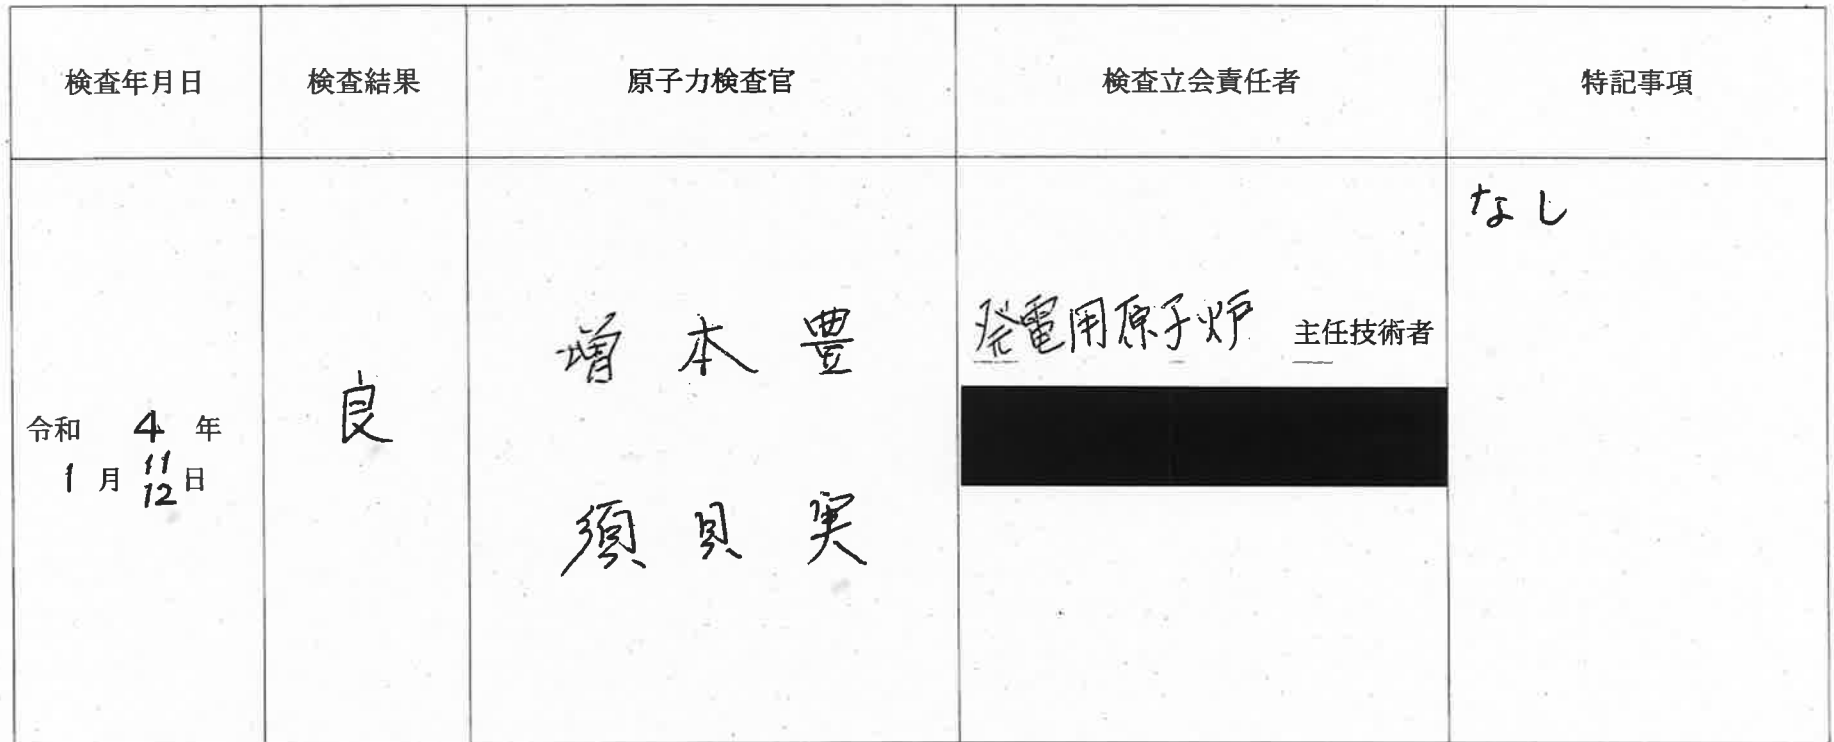 検査年月日
検査結果
原子力検査官
検査立会責任者
特記事項
令和 4 年
1 月 11 日
12
良
増本豊
須貝実
発電用原子炉 主任技術者
なし